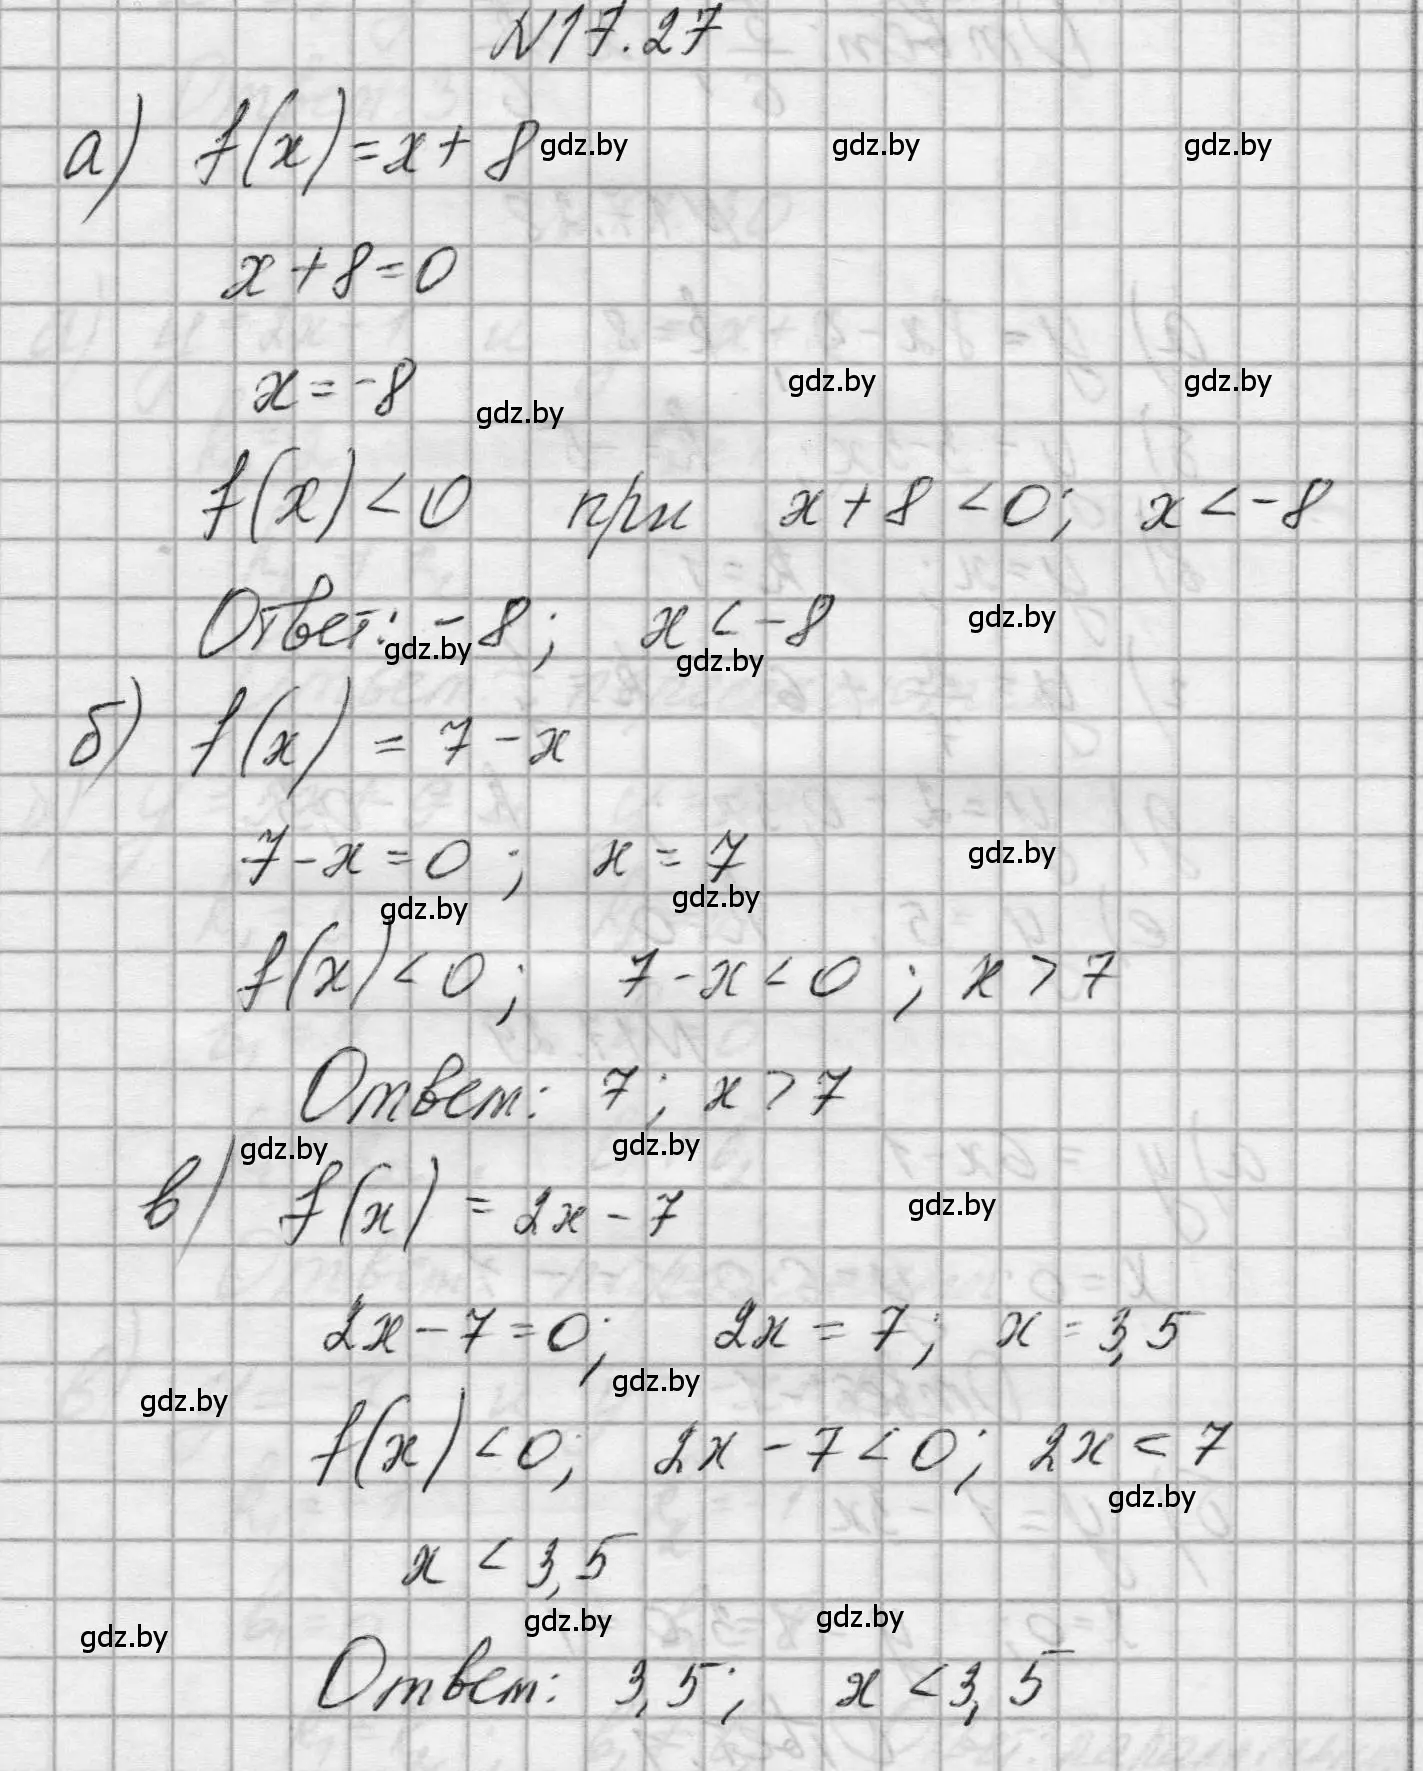 N17.27
а) f(x)=x+8 gdz.by gdz.by gdz.by
x+8=0
x=-8 gdz.by gdz.by gdz.by
f(x)<0 при x+8<0; x<-8
Ответ: -8; x<-8 gdz.by
gdz.by gdz.by
б) f(x) = 7-x
7-x=0; x=7 gdz.by
gdz.by gdz.by
f(x)<0; 7-x<0; x>7
Ответ: 7; x>7
gdz.by gdz.by
в) f(x) = 2x-7 gdz.by
2x-7=0; 2x=7; x=3,5
gdz.by gdz.by
f(x)<0; 2x-7<0; 2x<7
gdz.by
x<3,5
gdz.by gdz.by gdz.by
Ответ: 3,5; x<3,5